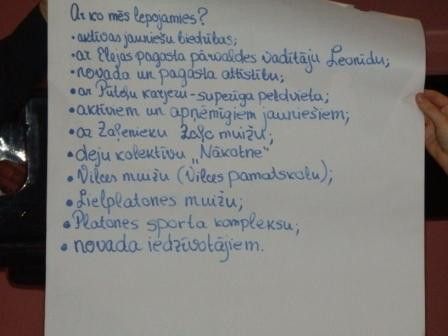 Ar ko mēs lepojamies?
• aktīvas jauniešu biedrības;
• ar Elejas pagasta pārvaldes vadītāju Leonīdu;
• novada un pagasta attīstību;
• ar Pūteļu karjeru - superīga peldvieta;
• aktīviem un apņēmīgiem jauniešiem;
• ar Zaļenieku Zaļo muižu;
• deju kolektīvu „Nākotne"
• Vilces muižu (Vilces pamatskolu);
• Lielplatones muižu;
• Platones sporta kompleksu;
• novada iedzīvotājiem.